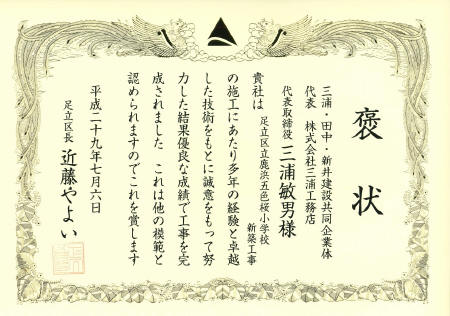 褒状
三浦・田中・新井建設共同企業体
代表 株式会社三浦工務店
代表取締役 三浦敏男様
貴社は 足立区立鹿浜五色桜小学校 新築工事
の施工にあたり多年の経験と卓越
した技術をもとに誠意をもって努
力した結果優良な成績で工事を完
成されました これは他の模範と
認められますのでこれを賞します
平成二十九年七月六日
足立区長 近藤やよい